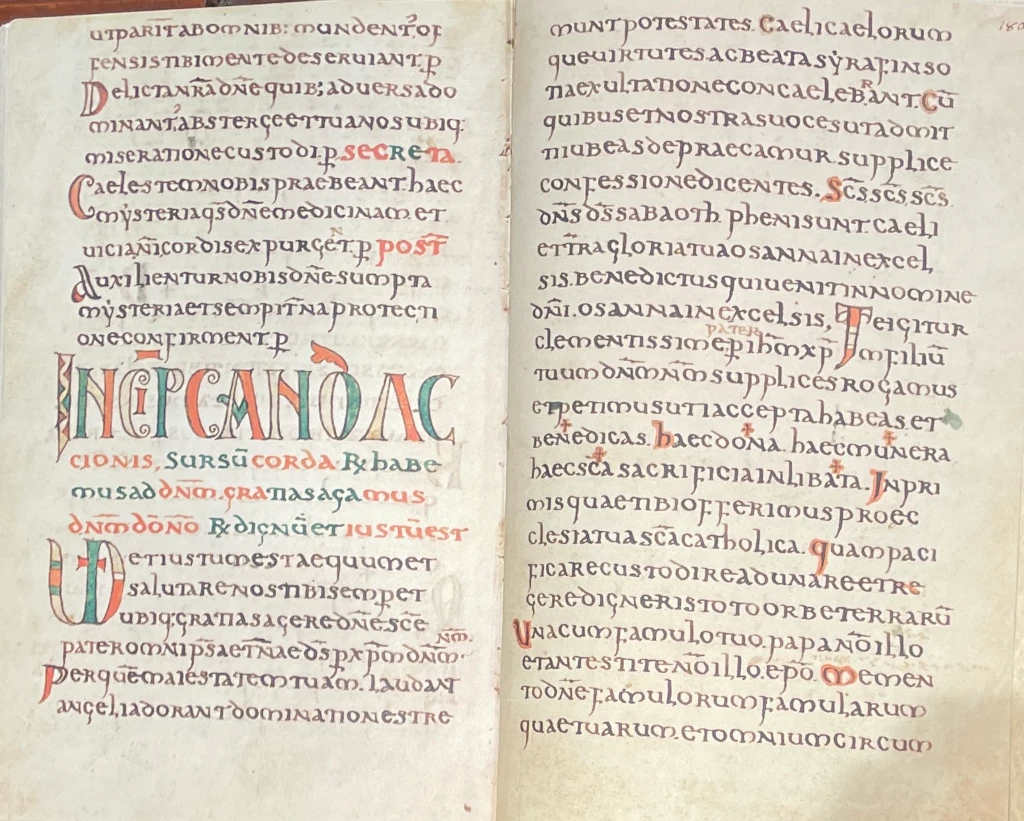 utparitabomnib: mundent, of
fensistibimentedeseruiant.p̱
Delictanr̄adn̄equib; aduersado
minant, abstergeettuanosubiq:
miserationecustodi.p̱ secreta.
Caelestemnobispraebeant.haec
mẏsteriaqs̄dn̄emedicinamet
uicianr̄icordisexpurgent.p̱ post̄
Auxilienturnobisdn̄esumpta
mẏsteriaetsempit̄naprotecti
oneconfirment.p̱
INCĪP CANŌ AC
cionis, sursū corda. R̄ habe
musaddn̄m. gratiasagamus
dn̄mdōnō R̄ dignū etiustūest
Uetiustumestaequumet
salutarenostibisempet
ubiq; gratiasageredn̄esc̄e
pateromnip̄saet̄naed̄s p̱xp̄mdn̄m. nm̄.
Perquēmaiestatemtuam. laudant
angeliadorantdominationestre
muntpotestates. Caelicaelorum
queuirtutes. acbeatasẏrafinso
tiaexultationeconcaelebrant. Cū
quibusetnostrasuocesutadmit
tiiubeasdepraecamur. supplice
confessionedicentes. Sc̄s sc̄s. sc̄s.
dn̄s d̄s sabaoth. phenisunt. caeli
et̄tragloriatuaosannainexcel
sis. benedictusquiuenitinnomine
dn̄i. osannainexcelsis, Teigitur
clementissimep̱ihm̄xp̄ Imfiliū
pater
tuumdn̄mnm̄supplicesrogamus
etpetimusutiacceptahabeas. et
benedicas. haecdōna. haecmunera
haecsc̄asacrificiainlibata. Inpri
misquaetibiofferimusproec
clesiatuasc̄acatholica. quampaci
ficarecustodireadunareetre
geredigneristotoorbeterrarū
Unacumfamulotuo. papan̄oillo
etantestiten̄oillo. ep̄o. Memen
todn̄efamulorumfamularum
quaetuarumetomniumcircum